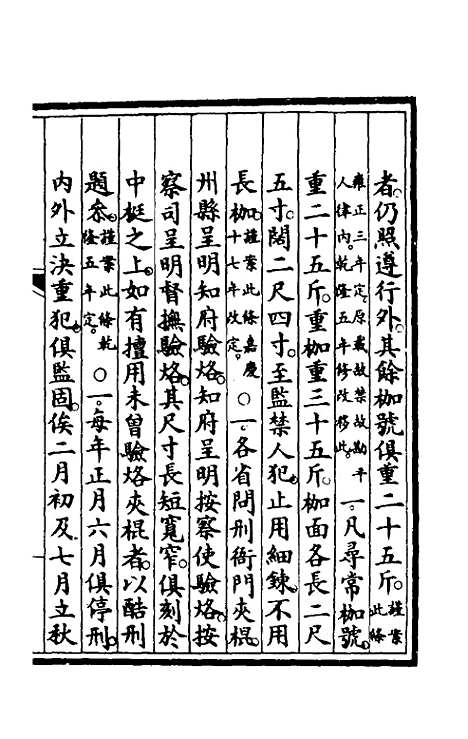 者。仍照遵行外。其餘枷號俱重二十五斤。謹案此條
雍正三年定。原載故禁故勘平人律內。乾隆五年修改移此。一。凡尋常枷號。
重二十五斤。重枷重三十五斤。枷面各長二尺
五寸。闊二尺四寸。至監禁人犯。止用細鍊。不用
長枷。謹案此條嘉慶十七年改定。○一。各省問刑衙門夾棍。
州縣呈明知府驗烙。知府呈明按察使驗烙。按
察司呈明督撫驗烙。其尺寸長短寬窄。俱刻於
中梃之上。如有擅用未曾驗烙夾棍者。以酷刑
題參。謹案此條乾隆五年定。○一。每年正月六月俱停刑。
內外立決重犯。俱監固。俟二月初及七月立秋